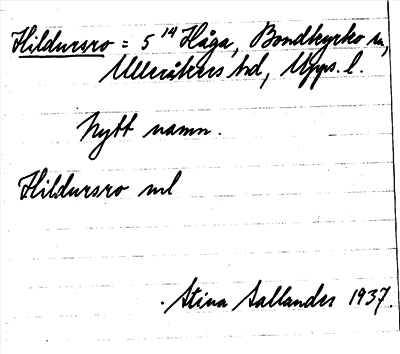 Hildursro = 5¹⁴ Håga, Bondkyrko sn,
Ulleråkers hd, Upps. l.
Nytt namn.
Hildursro ml
Stina Sallander 1937.